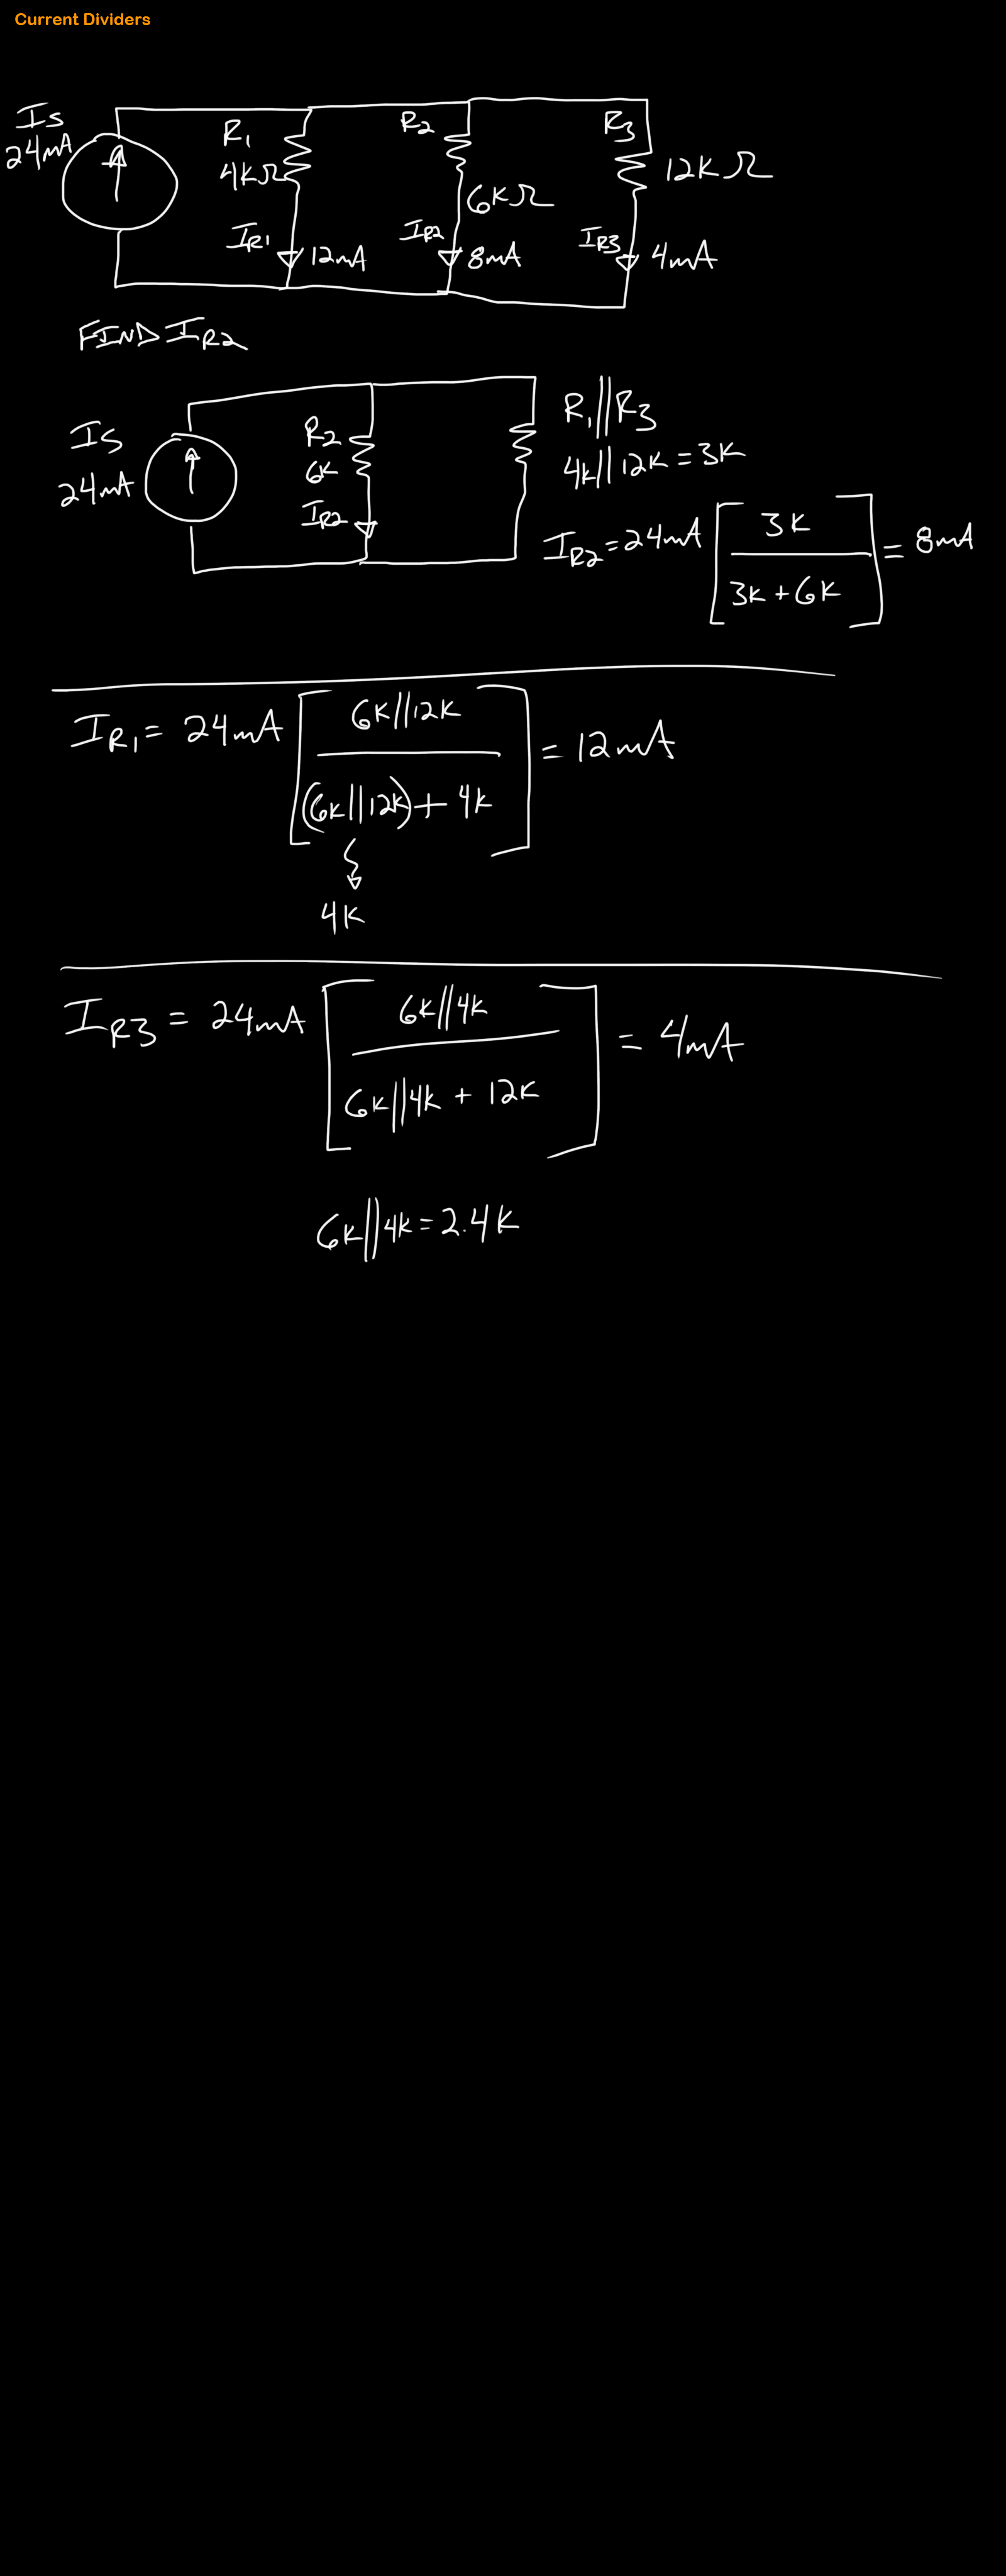 Current Dividers
Is
24mA
R1
4KΩ
IR1
12mA
R2
6KΩ
IR2
8mA
R3
12KΩ
IR3
4mA
FIND IR2
IS
24mA
R2
6K
IR2
R1||R3
4K||12K = 3K
IR2 = 24mA [ 3K / 3K + 6K ] = 8mA
IR1 = 24mA [ 6K||12K / (6K||12K) + 4K ] = 12mA
4K
IR3 = 24mA [ 6K||4K / 6K||4K + 12K ] = 4mA
6K||4K = 2.4K